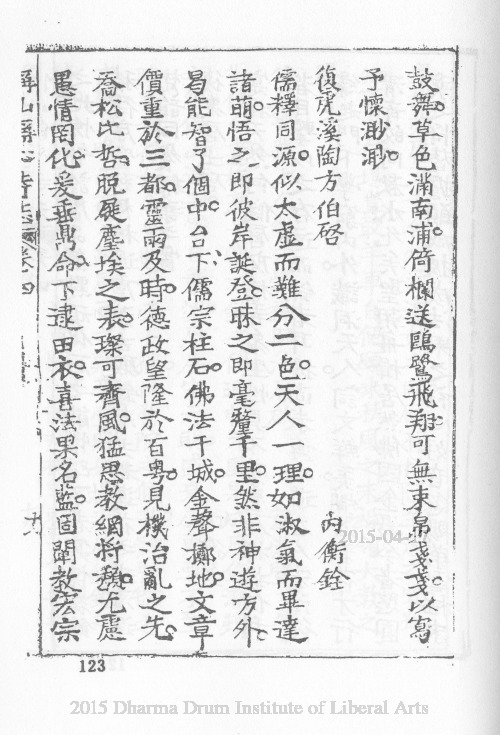 鼓舞草色滿南浦倚欄送鷗鷺飛翔可無束帛戔戔以寫
予懷渺渺
復虎溪陶方伯啓　內衡銓
儒釋同源似太虛而難分二色天人一理如淑氣而畢達
諸萌悟之即彼岸誕登昧之即毫釐千里然非神遊方外
曷能智了個中台下儒宗柱石佛法干城金聲擲地文章
價重於三都靈雨及時德政望隆於百粵見機治亂之先
喬松比哲脫屣塵埃之表璨可齊風猛思教網將頹尤慮
愚情罔化爰垂鼎命下逮田衣喜法果名藍固闡教宏宗
卷四
123
2015-04-
2015 Dharma Drum Institute of Liberal Arts